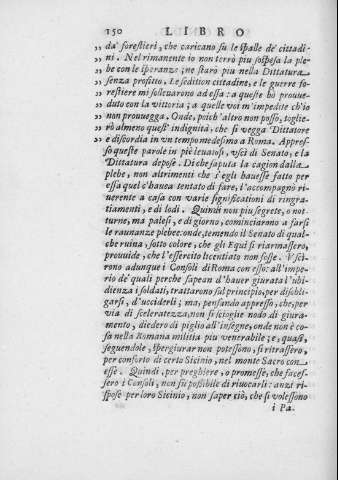 150 LIBRO
„ da' forestieri, che caricano sù le spalle de' cittadi-
„ ni. Nel rimanente io non terrò piu sospesa la ple
„ be con le speranze; ne starò piu nella Dittatura
„ senza profitto. Le sedition cittadine, e le guerre fo-
„ restiere mi solleuarono ad essa: a queste hò proue-
„ duto con la vittoria; a quelle voi m'impedite ch'io
„ non prouuegga. Onde, poich' altro non posso, toglie-
„ rò almeno quest' indignità, che si vegga Dittatore
„ e discordia in vn tempo medesimo a Roma. Appres-
so queste parole in piè leuatosi, vscì di Senato, e la
Dittatura depose. Di che saputa la cagion dalla
plebe, non altrimenti che s'egli hauesse fatto per
essa quel c'hauea tentato di fare, l'accompagnò ri-
uerente a casa con varie significationi di ringra-
tiamenti, e di lodi. Quindi non piu segrete, o not-
turne, ma palesi, e di giorno, cominciarono a farsi
le raunanze plebee: onde, temendo il Senato di qual-
che ruina, sotto colore, che gli Equi si riarmassero,
prouuide, che l'essercito licentiato non fosse. Vsci-
rono adunque i Consoli di Roma con esso: all'impe-
rio de' quali perche sapean d'hauer giurata l'ubi-
dienza i soldati, trattarono sul principio, per disobli-
garsi, d'ucciderli; ma, pensando appresso, che, per
via di sceleratezza, non si scioglie nodo di giura-
mento, diedero di piglio all'insegne, onde non è co-
sa nella Romana militia piu venerabile; e, quasi,
seguendole, spergiurar non potessono, si ritrassero,
per conforto di certo Sicinio, nel monte Sacro con-
esse. Quindi, per preghiere, o promesse, che faces-
sero i Consoli, non fù possibile di riuocarli: anzi ri-
spose per loro Sicinio, non saper ciò, che si volessono
i Pa-